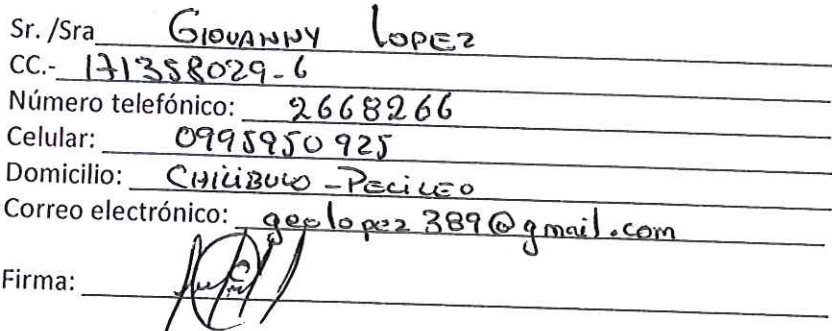 Sr. /Sra GIOVANNY LOPEZ
CC.- 171358029-6
Número telefónico: 2668266
Celular: 0995950925
Domicilio: CHILIBULO - PECILEO
Correo electrónico: geolopez389@gmail.com
Firma: